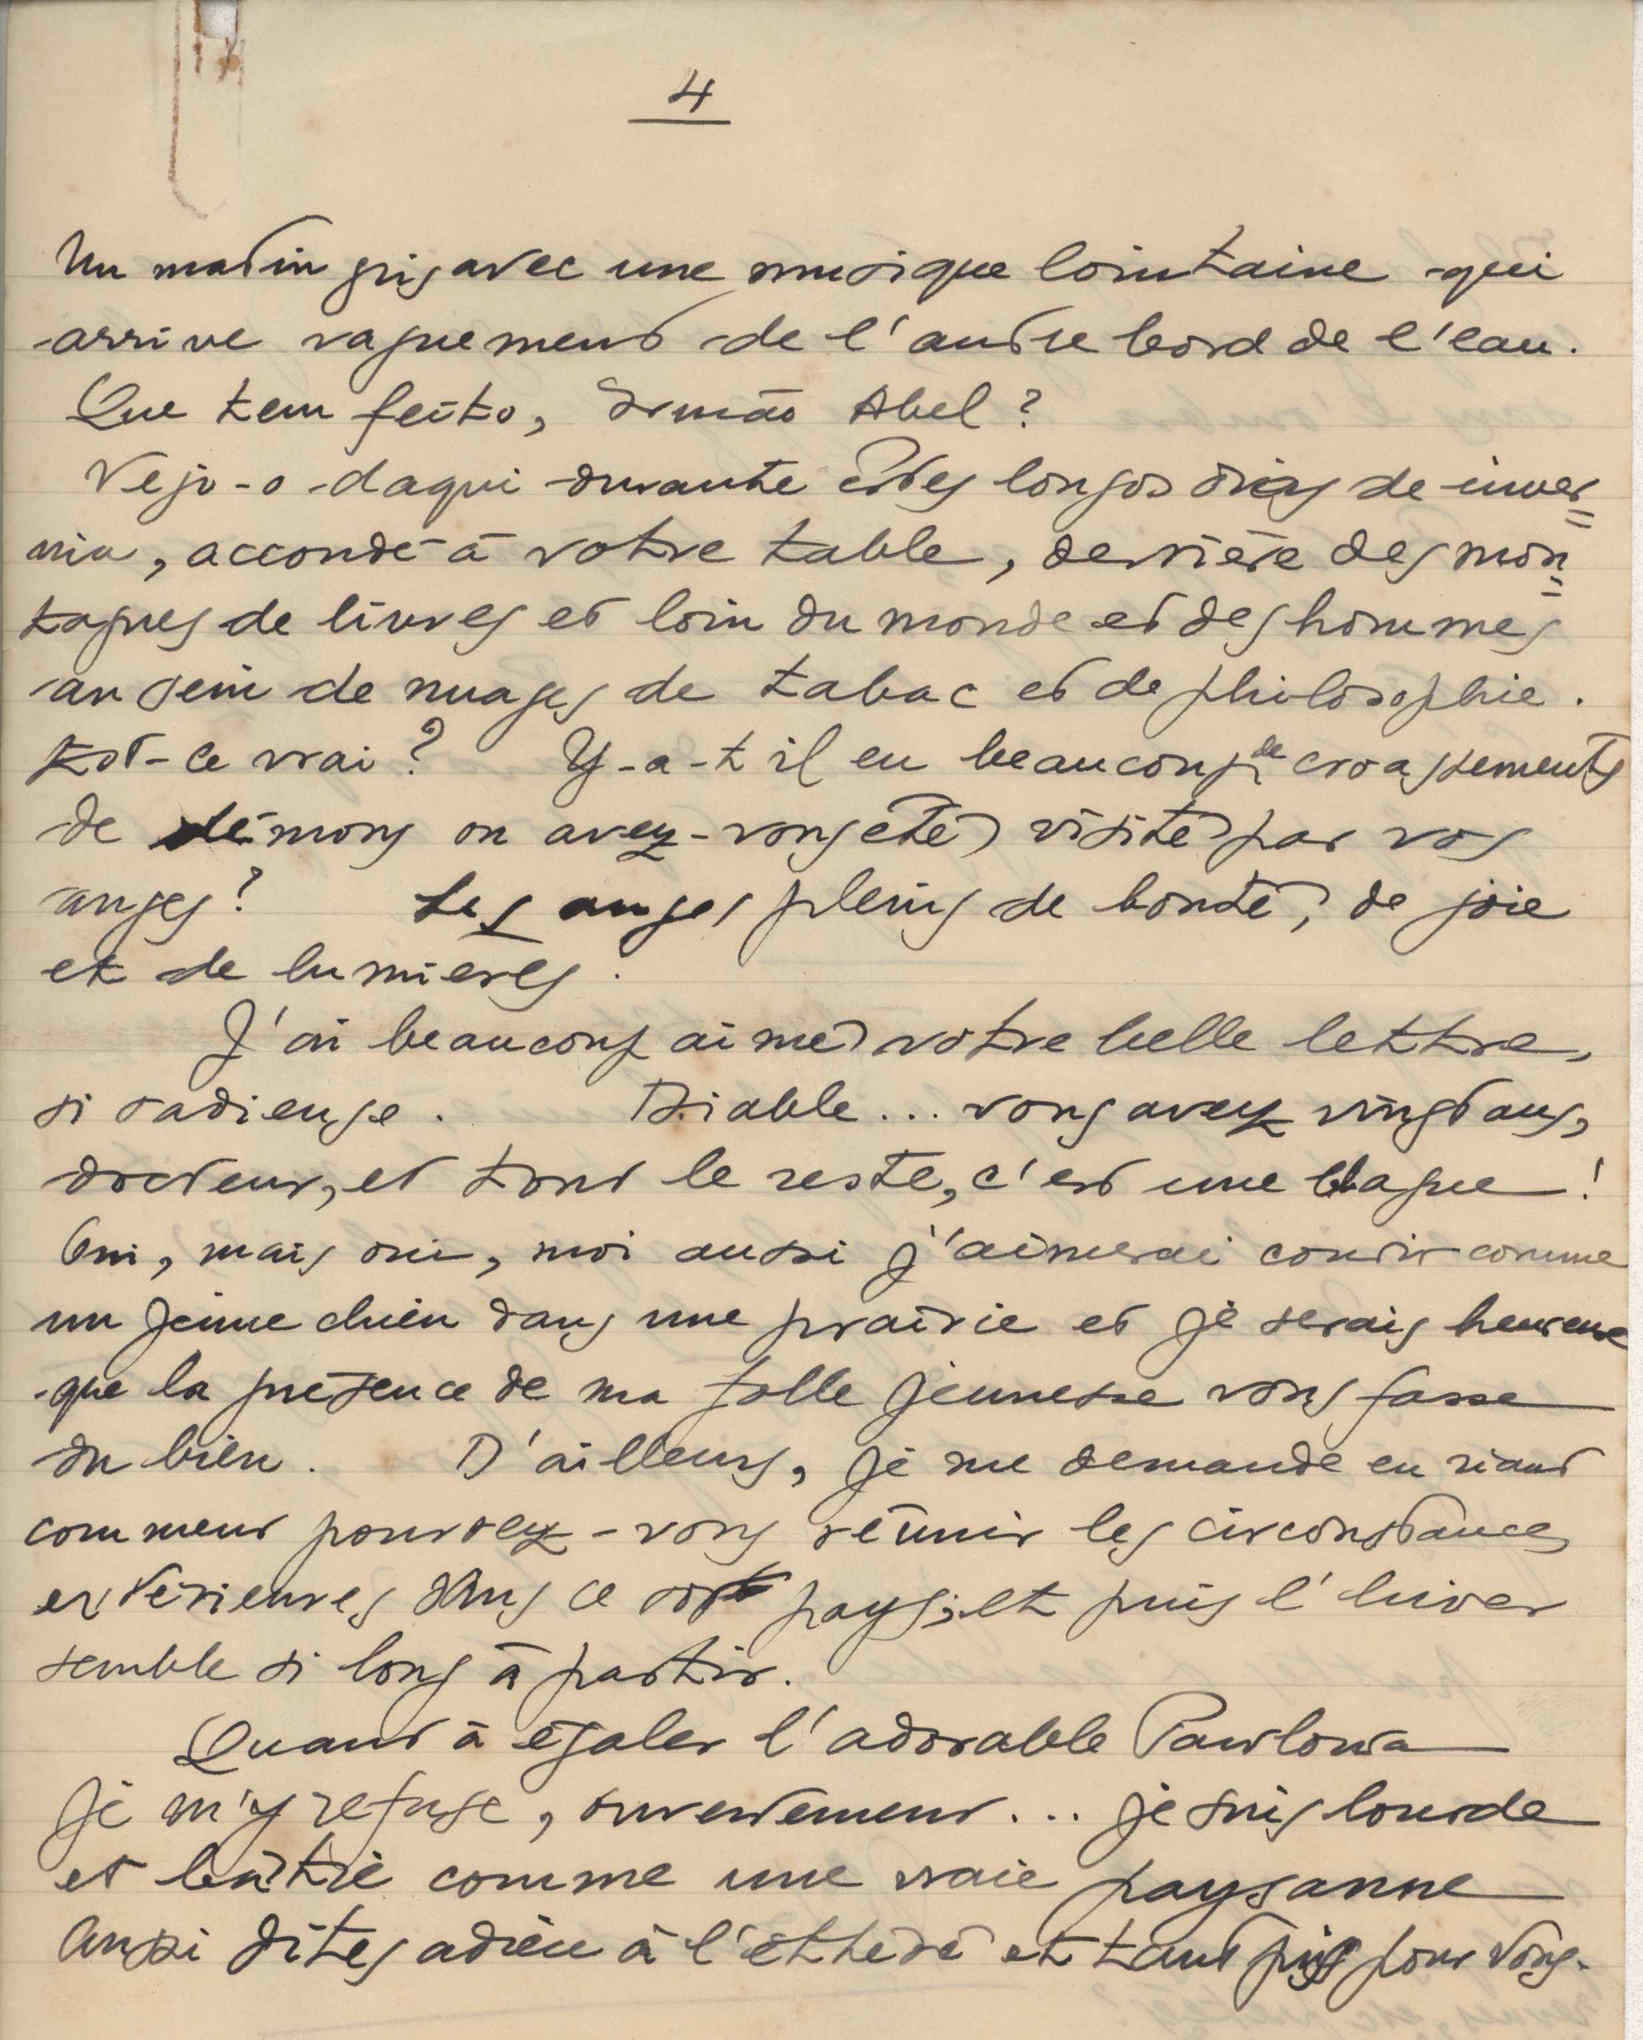 4
Un matin gris avec une musique lointaine qui
arrive vaguement de l'autre bord de l'eau.
Que tem feito, Irmão Abel?
Vejo-o daqui durante estes longos dias de inver=
nia, accoudé à votre table, derrière des mon=
tagnes de livres et loin du monde et des hommes
au sein de nuages de tabac et de philosophie.
Est-ce vrai? Y-a-t il eu beaucoup de croassements
de démons ou avez-vous été visité par vos
anges? Les anges pleins de bonté, de joie
et de lumières.
J'ai beaucoup aimé votre belle lettre,
si radieuse. Diable... vous avez vingt ans,
docteur, et tout le reste, c'est une blague!
Oui, mais oui, moi aussi j'aimerai courir comme
un jeune chien dans une prairie et je serais heureuse
que la présence de ma folle jeunesse vous fasse
du bien. D'ailleurs, je me demande en riant
comment pourrez-vous réunir les circonstances
extérieures dans ce pays; et puis l'hiver
semble si long à partir.
Quant à égaler l'adorable Pawlowa
je m'y refuse, ouvertement... je suis lourde
et bâtie comme une vraie paysanne
Aussi dites adieu à l'éthéré et tant pis pour vous.